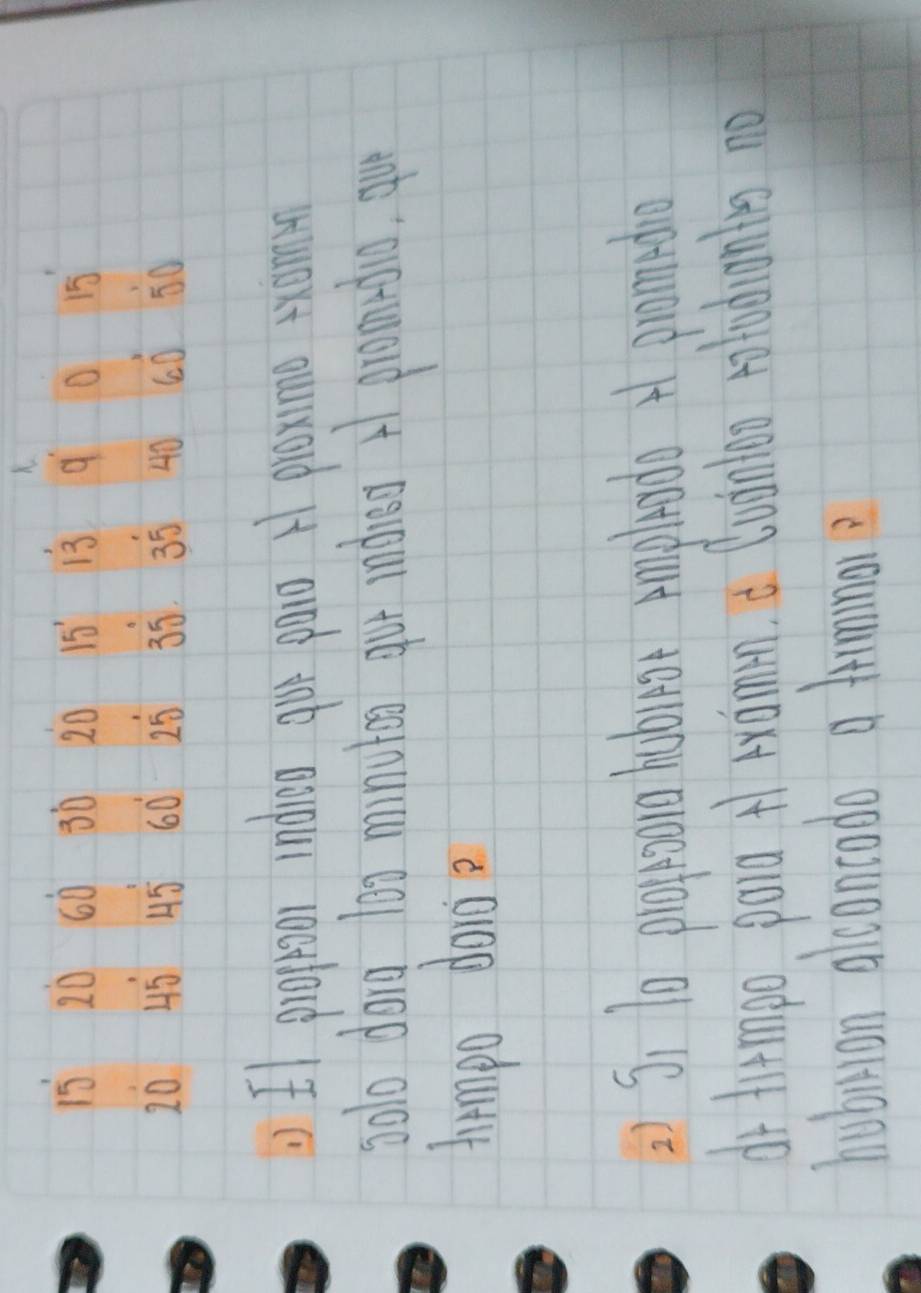 15 20 60 30 20 15 13 9 0 15
20 45 45 60 25 35 35 40 60 50
1) El profesor indica que para el proximo examen
solo dara los minutos que indica el promedio, que
tiempo dará?
2) Si la profesora hubiese empleado el promedio
de tiempo para el exámen. ¿ Cuántos estudiantes no
hubieron alcanzado a terminar?